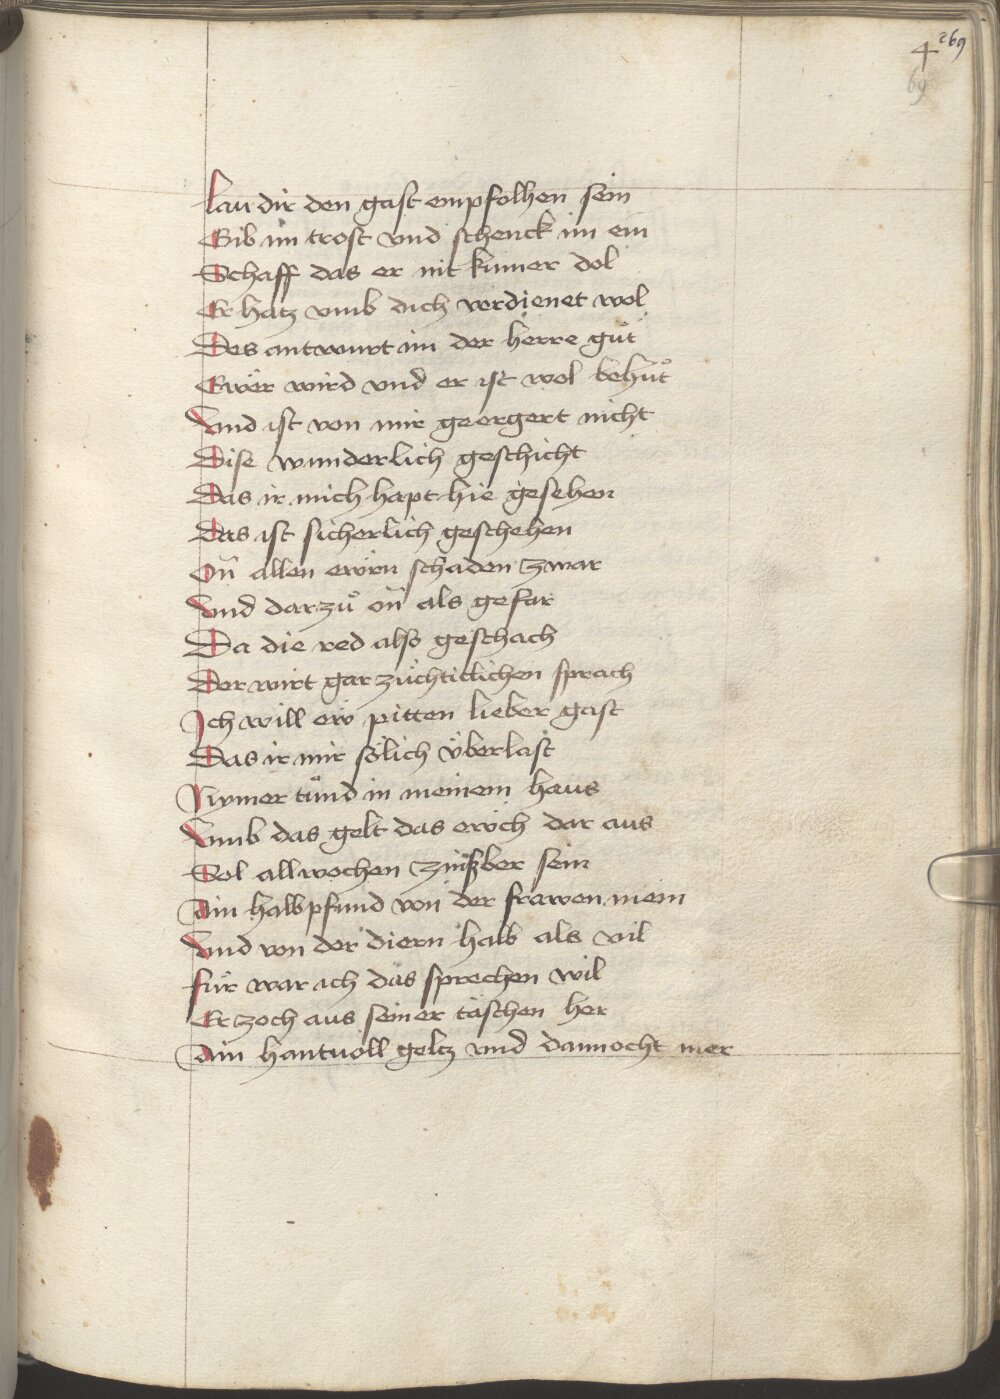 269
4
69
Lau dir den gast empfolhen sein
Gib im trost vnd schenck im ein
Schaff das er nit kumer dol
Er hatz vmb dich verdienet wol
Des antwurt im der herre gůt
Ewër wird vnd er ist wol behůt
Vnd ist von mir georgert nicht
Dise wunderlich geschicht
Das ir mich hapt hie gesehen
Das ist sicherlich geschehen
On̄ allen ewrn schaden zwar
Vnd darzů on̄ als gefar
Da die red also geschach
Der wirt gar züchticlichen sprach
Ich will ew pitten lieber gast
Das ir mir sölich überlast
Nymer tůnd in meinem haus
Vmb das gelt das ewch dar aus
Sol all wochen zinßber sein
Ain halb pfund von der frawen mein
Vnd von der diern halb als vil
Für war ich das sprechen wil
Er zoch aus seiner täschen her
Ain hantuoll geltz vnd dannocht mer